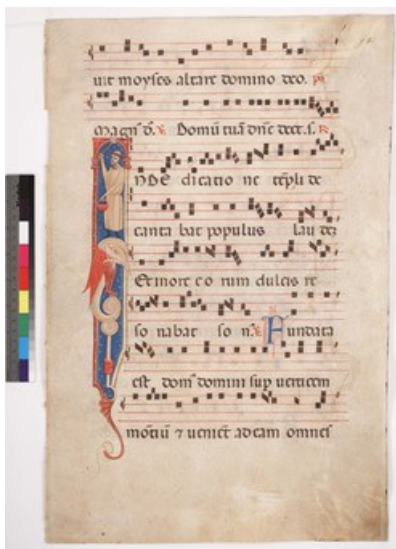 uit moyses altare domino deo. R̃
Magn̄ d̄. V̄. Domū tuā dn̄e decet. s. R̃
INDE dicatio ne tēpli de
canta bat populus lau dez
Et in ore eo rum dulcis re
so nabat so n. V̄. Fundata
est dom᷒ domini sup uerticem
motiū ⁊ ueniēt ad eam omnes